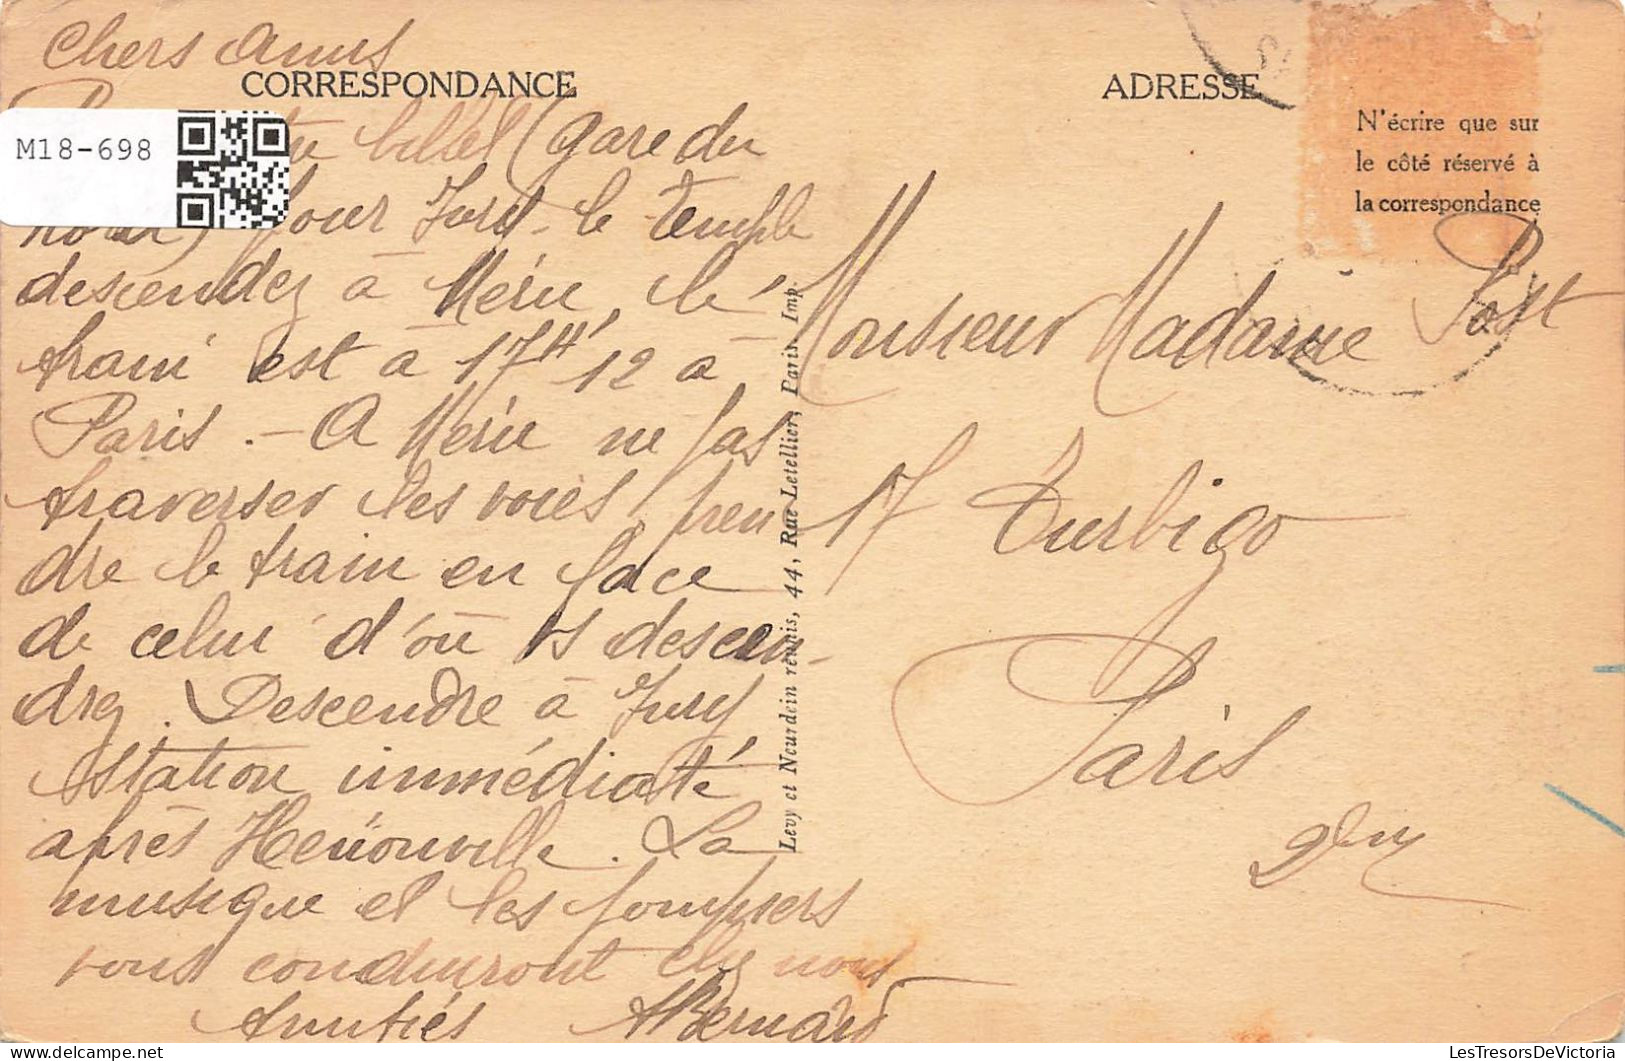 Chers Amis
CORRESPONDANCE
M18-698
billet (gare du
Nord) pour Ivry-le-temple
descendez à Méru, le
train est à 17H 12 à
Paris. - A Méru ne pas
traverser les voies, pren
dre le train en face
de celui d'où vs descen-
drez. Descendre à Ivry
station immédiate
après Hénonville. La
musique et les pompiers
vous conduiront chez nous
Amitiés ABernard
Levy et Neurdein réunis, 44, Rue Letellier, Paris Imp.
ADRESSE
N'écrire que sur
le côté réservé à
la correspondance
Monsieur Madame Post
17 Turbigo
Paris
2em
LesTresorsDeVictoria